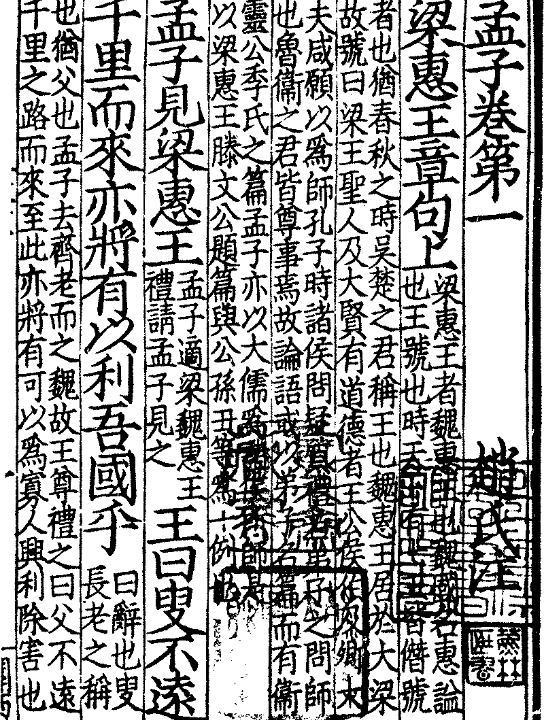 孟子卷第一
趙氏注
梁惠王章句上
梁惠王者魏惠王也魏國名惠謚
也王號也時天下有七王皆僭號
者也猶春秋之時吳楚之君稱王也魏惠王居於大梁
故號曰梁王聖人及大賢有道德者王公侯伯及卿大
夫咸願以為師孔子時諸侯問疑質禮若弟子之問師
也魯衛之君皆尊事焉故論語或以弟子名篇而有衛
靈公季氏之篇孟子亦以大儒為諸侯所師是
以梁惠王滕文公題篇與公孫丑等為一例也
孟子見梁惠王
孟子適梁魏惠王
禮請孟子見之
王曰叟不遠
千里而來亦將有以利吾國乎
曰辭也叟
長老之稱
也猶父也孟子去齊老而之魏故王尊禮之曰父不遠
千里之路而來至此亦將有可以為寡人興利除害也